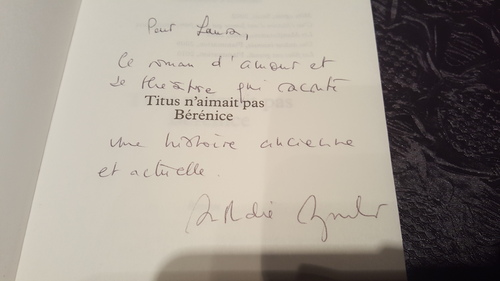 Pour Laura,
ce roman d'amour et
de théâtre qui raconte
Titus n'aimait pas
Bérénice
une histoire ancienne
et actuelle.